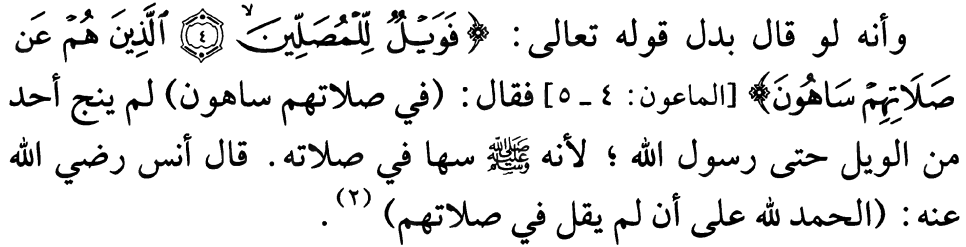 وأنه لو قال بدل قوله تعالى: ﴿فَوَيۡلٞ لِّلۡمُصَلِّينَ ۙ ٤ ٱلَّذِينَ هُمۡ عَن
صَلَاتِهِمۡ سَاهُونَ﴾ [الماعون: ٤ ـ ٥] فقال: (في صلاتهم ساهون) لم ينج أحد
من الويل حتى رسول الله ؛ لأنه ﷺ سها في صلاته. قال أنس رضي الله
عنه: (الحمد لله على أن لم يقل في صلاتهم) (٢).